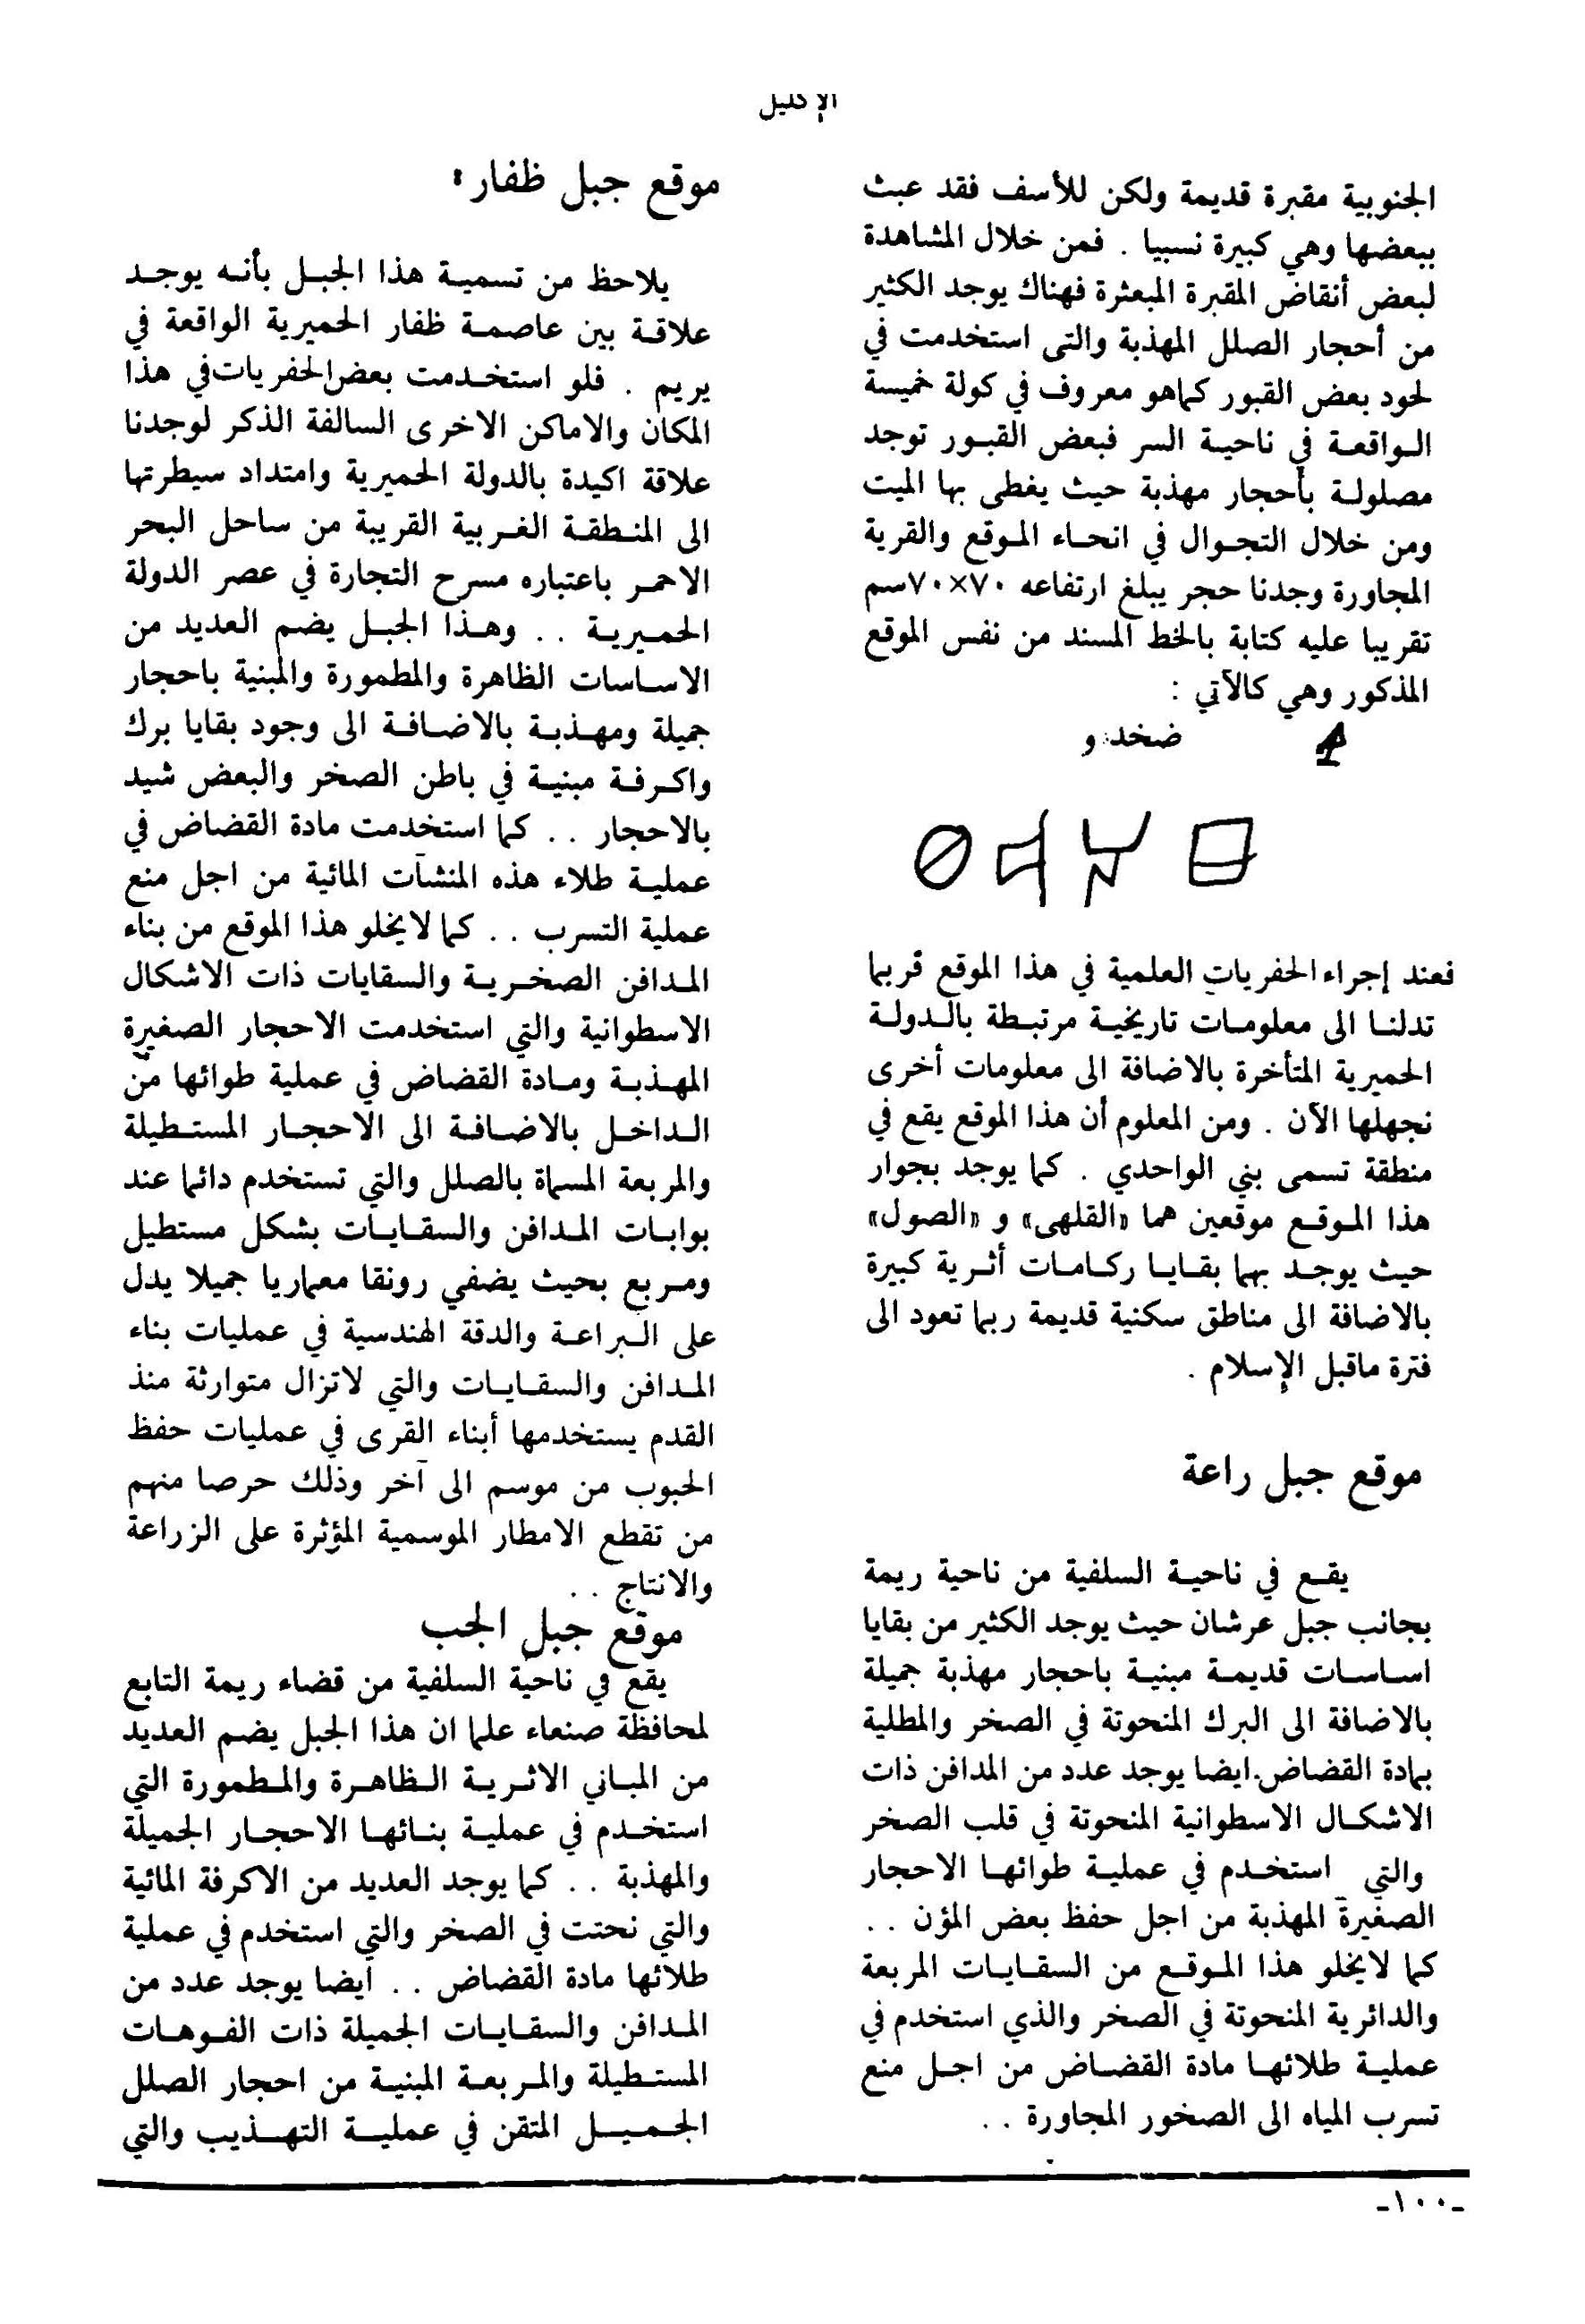 الإكليل
الجنوبية مقبرة قديمة ولكن للأسف فقد عبث
ببعضها وهي كبيرة نسبيا . فمن خلال المشاهدة
لبعض أنقاض المقبرة المبعثرة فهناك يوجد الكثير
من أحجار الصلل المهذبة والتى استخدمت في
لحود بعض القبور كماهو معروف في كولة خميسة
الواقعة في ناحية السر فبعض القبور توجد
مصلولة بأحجار مهذبة حيث يغطى بها الميت
ومن خلال التجوال في انحاء الموقع والقرية
المجاورة وجدنا حجر يبلغ ارتفاعه ٧٠×٧٠سم
تقريبا عليه كتابة بالخط المسند من نفس الموقع
المذكور وهي كالآتي :
فعند إجراء الحفريات العلمية في هذا الموقع قربما
تدلنا الى معلومات تاريخية مرتبطة بالدولة
الحميرية المتأخرة بالاضافة الى معلومات أخرى
نجهلها الآن . ومن المعلوم أن هذا الموقع يقع في
منطقة تسمى بني الواحدي . كما يوجد بجوار
هذا الموقع موقعين هما «القلهى» و «الصول»
حيث يوجد بهما بقايا ركامات أثرية كبيرة
بالاضافة الى مناطق سكنية قديمة ربما تعود الى
فترة ماقبل الإسلام .
موقع جبل راعة
يقع في ناحية السلفية من ناحية ريمة
بجانب جبل عرشان حيث يوجد الكثير من بقايا
اساسات قديمة مبنية باحجار مهذبة جميلة
بالاضافة الى البرك المنحوتة في الصخر والمطلية
بمادة القضاض.ايضا يوجد عدد من المدافن ذات
الاشكال الاسطوانية المنحوتة في قلب الصخر
والتي استخدم في عملية طوائها الاحجار
الصغيرة المهذبة من اجل حفظ بعض المؤن . .
كما لايخلو هذا الموقع من السقايات المربعة
والدائرية المنحوتة في الصخر والذي استخدم في
عملية طلائها مادة القضاض من اجل منع
تسرب المياه الى الصخور المجاورة . .
موقع جبل ظفار :
يلاحظ من تسمية هذا الجبل بأنه يوجد
علاقة بين عاصمة ظفار الحميرية الواقعة في
يريم . فلو استخدمت بعض الحفريات في هذا
المكان والاماكن الاخرى السالفة الذكر لوجدنا
علاقة اكيدة بالدولة الحميرية وامتداد سيطرتها
الى المنطقة الغربية القريبة من ساحل البحر
الاحمر باعتباره مسرح التجارة في عصر الدولة
الحميرية . . وهذا الجبل يضم العديد من
الاساسات الظاهرة والمطمورة والمبنية باحجار
جميلة ومهذبة بالاضافة الى وجود بقايا برك
واكرفة مبنية في باطن الصخر والبعض شيد
بالاحجار . . كما استخدمت مادة القضاض في
عملية طلاء هذه المنشآت المائية من اجل منع
عملية التسرب . . كما لايخلو هذا الموقع من بناء
المدافن الصخرية والسقايات ذات الاشكال
الاسطوانية والتي استخدمت الاحجار الصغيرة
المهذبة ومادة القضاض في عملية طوائها من
الداخل بالاضافة الى الاحجار المستطيلة
والمربعة المسماة بالصلل والتي تستخدم دائما عند
بوابات المدافن والسقايات بشكل مستطيل
ومربع بحيث يضفي رونقا معماريا جميلا يدل
على البراعة والدقة الهندسية في عمليات بناء
المدافن والسقايات والتي لاتزال متوارثة منذ
القدم يستخدمها أبناء القرى في عمليات حفظ
الحبوب من موسم الى آخر وذلك حرصا منهم
من تقطع الامطار الموسمية المؤثرة على الزراعة
والانتاج . .
موقع جبل الجب
يقع في ناحية السلفية من قضاء ريمة التابع
لمحافظة صنعاء علما ان هذا الجبل يضم العديد
من المباني الاثرية الظاهرة والمطمورة التي
استخدم في عملية بنائها الاحجار الجميلة
والمهذبة . . كما يوجد العديد من الاكرفة المائية
والتي نحتت في الصخر والتي استخدم في عملية
طلائها مادة القضاض . . ايضا يوجد عدد من
المدافن والسقايات الجميلة ذات الفوهات
المستطيلة والمربعة المبنية من احجار الصلل
الجميل المتقن في عملية التهذيب والتي
-١٠٠-